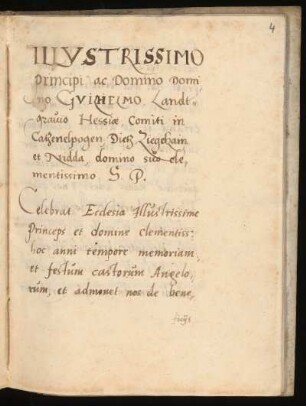 4
ILLVSTRISSIMO
Principi ac Domino Domi
no GVILHELMO, Landt-
gravio Hessiæ, Comiti in
Catzenelpogen Dietz Ziegēhain
et Nidda, domino suo cle,
mentissimo S. P.
Celebrat Ecclesia Illustrissime
Princeps et domine clementiss:
hoc anni tempore memoriam
et festum castorum Angelo,
rum, et admonet nos de bene,
ficijs